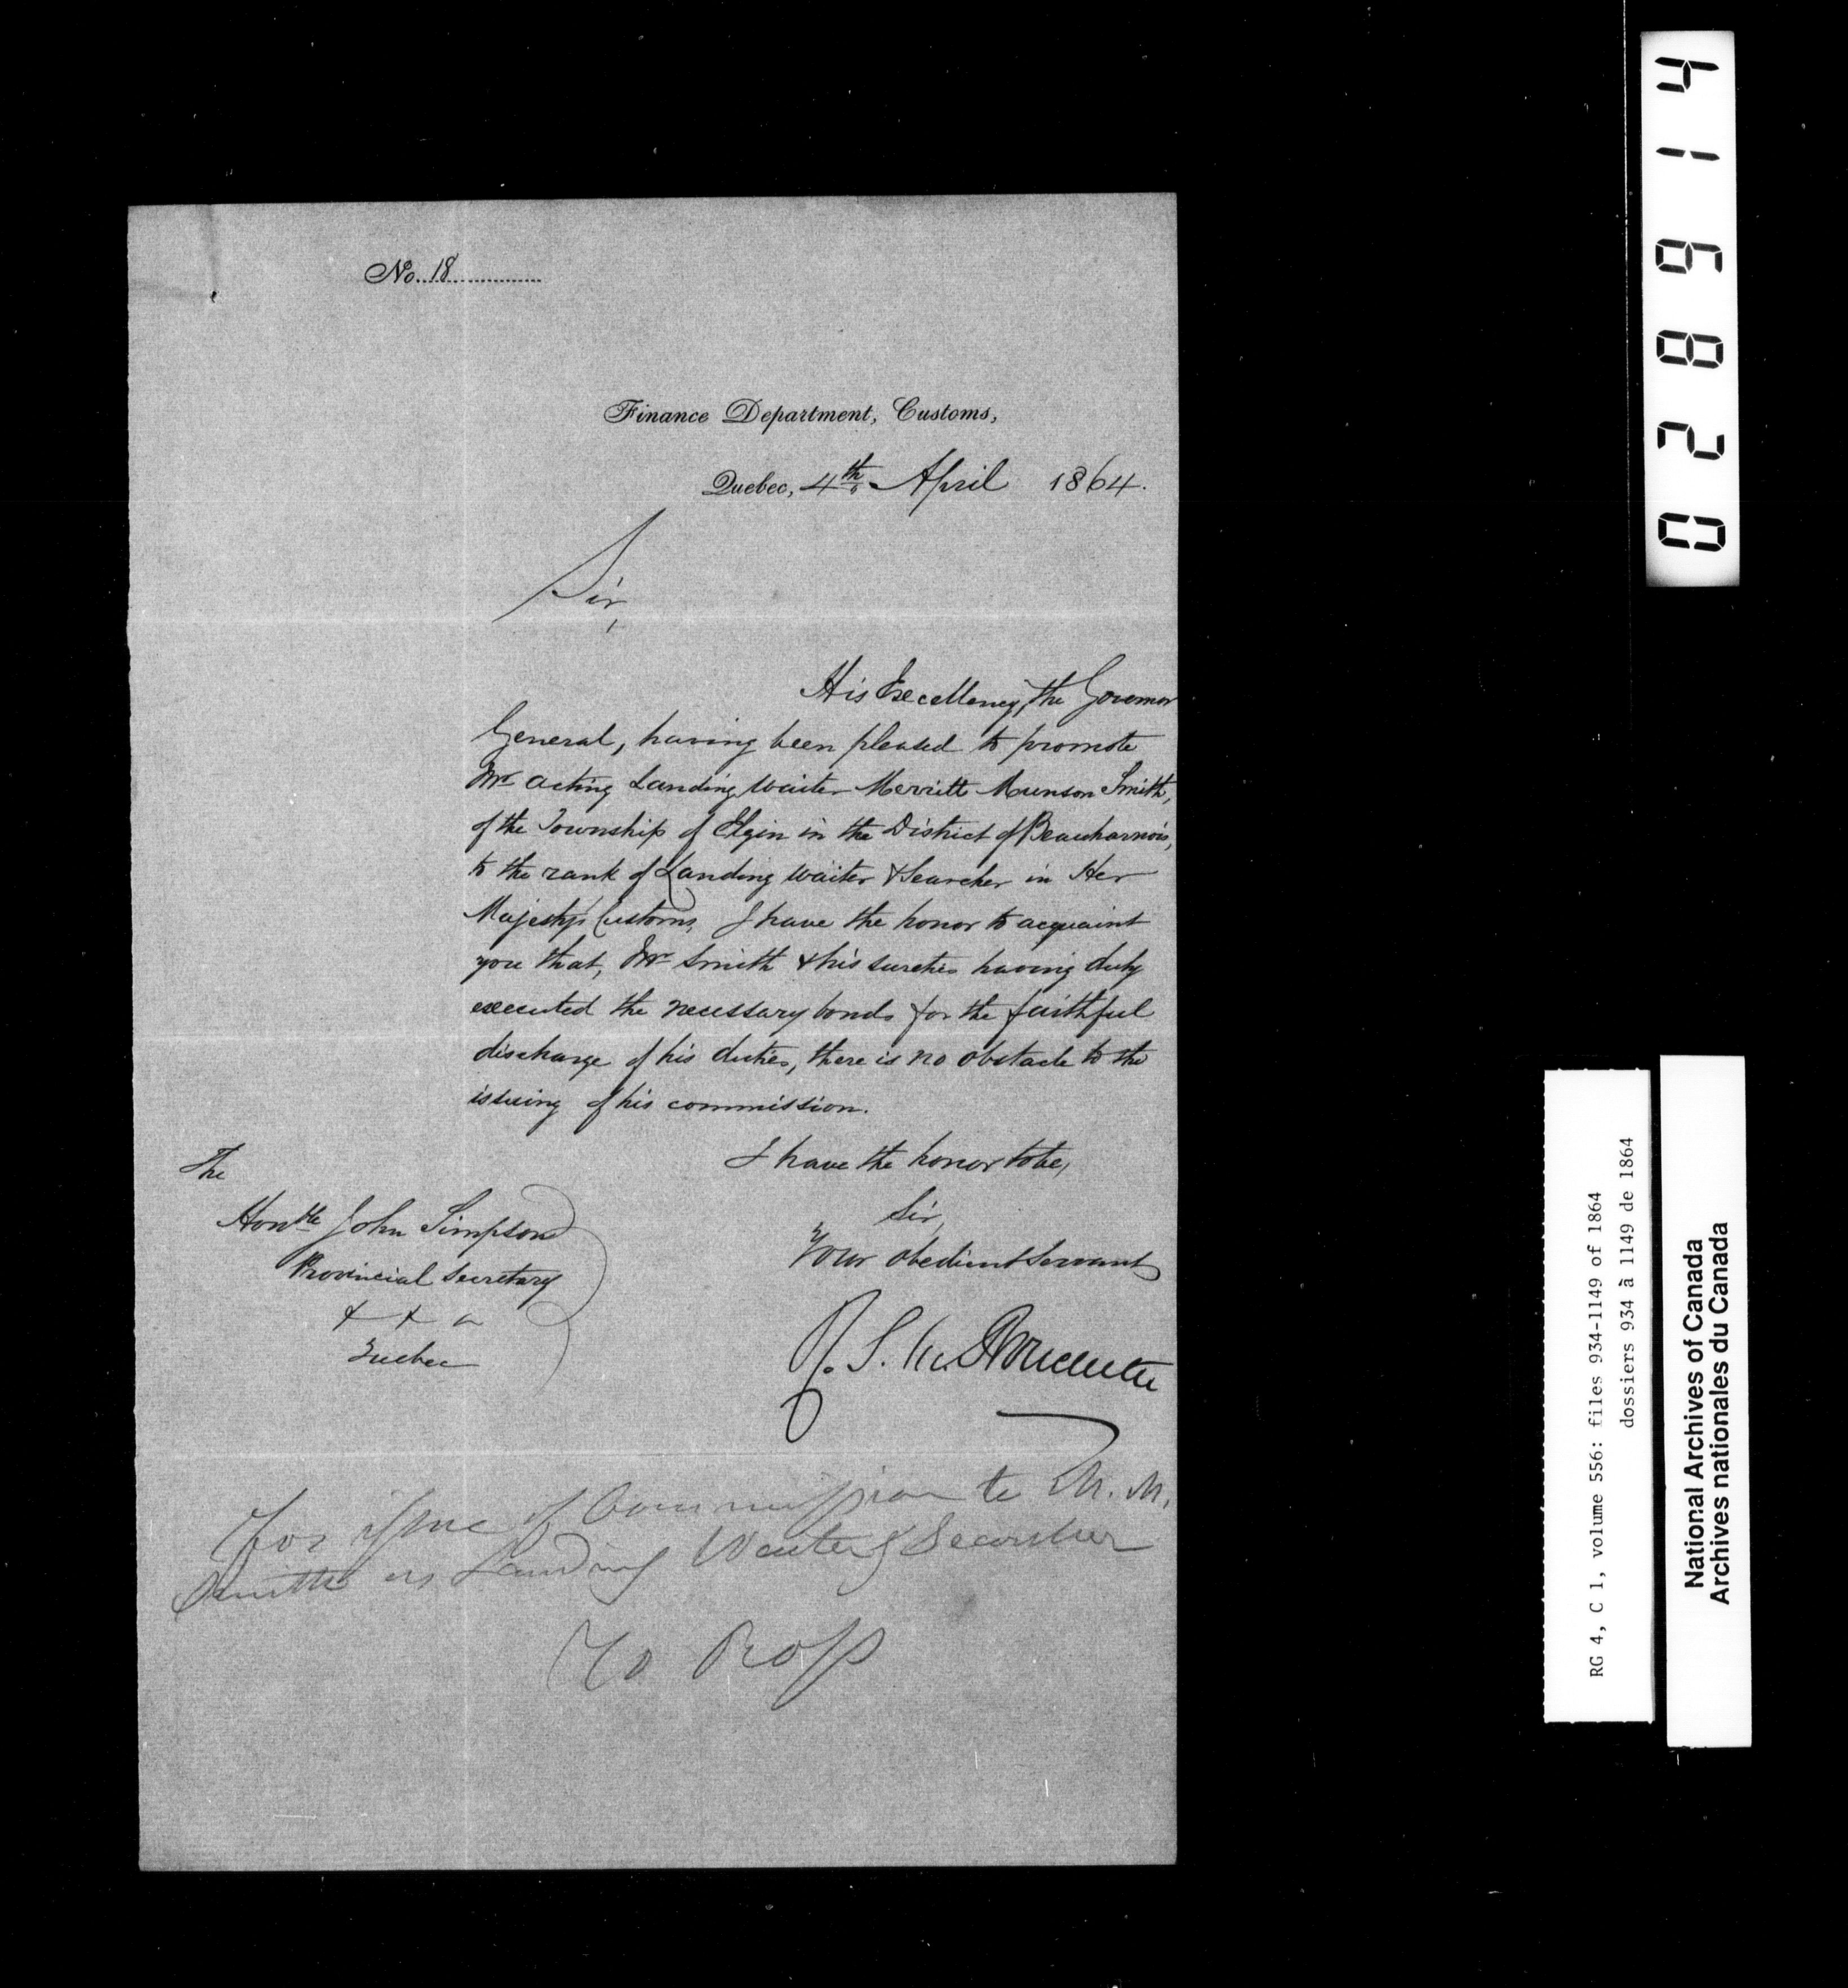 No. 18
Finance Department, Customs,
Quebec, 4th April 1864.
Sir,
His Excellency, the Governor
General, having been pleased to promote
Mr acting Landing Waiter Merritt Munson Smith,
of the Township of Elgin in the District of Beauharnois,
to the rank of Landing Waiter & Searcher in Her
Majesty's Customs, I have the honor to acquaint
you that, Mr Smith & his sureties having duly
executed the necessary bonds for the faithful
discharge of his duties, there is no obstacle to the
issuing of his commission.
I have the honor to be,
Sir,
Your obedient Servant
R. S. M.
The
Honble John Simpson
Provincial Secretary
Quebec
For issue of Commission to M. M.
Smith as Landing Waiter & Searcher
To Ross
028914
RG 4, C 1, volume 556: files 934-1149 of 1864
dossiers 934 à 1149 de 1864
National Archives of Canada
Archives nationales du Canada